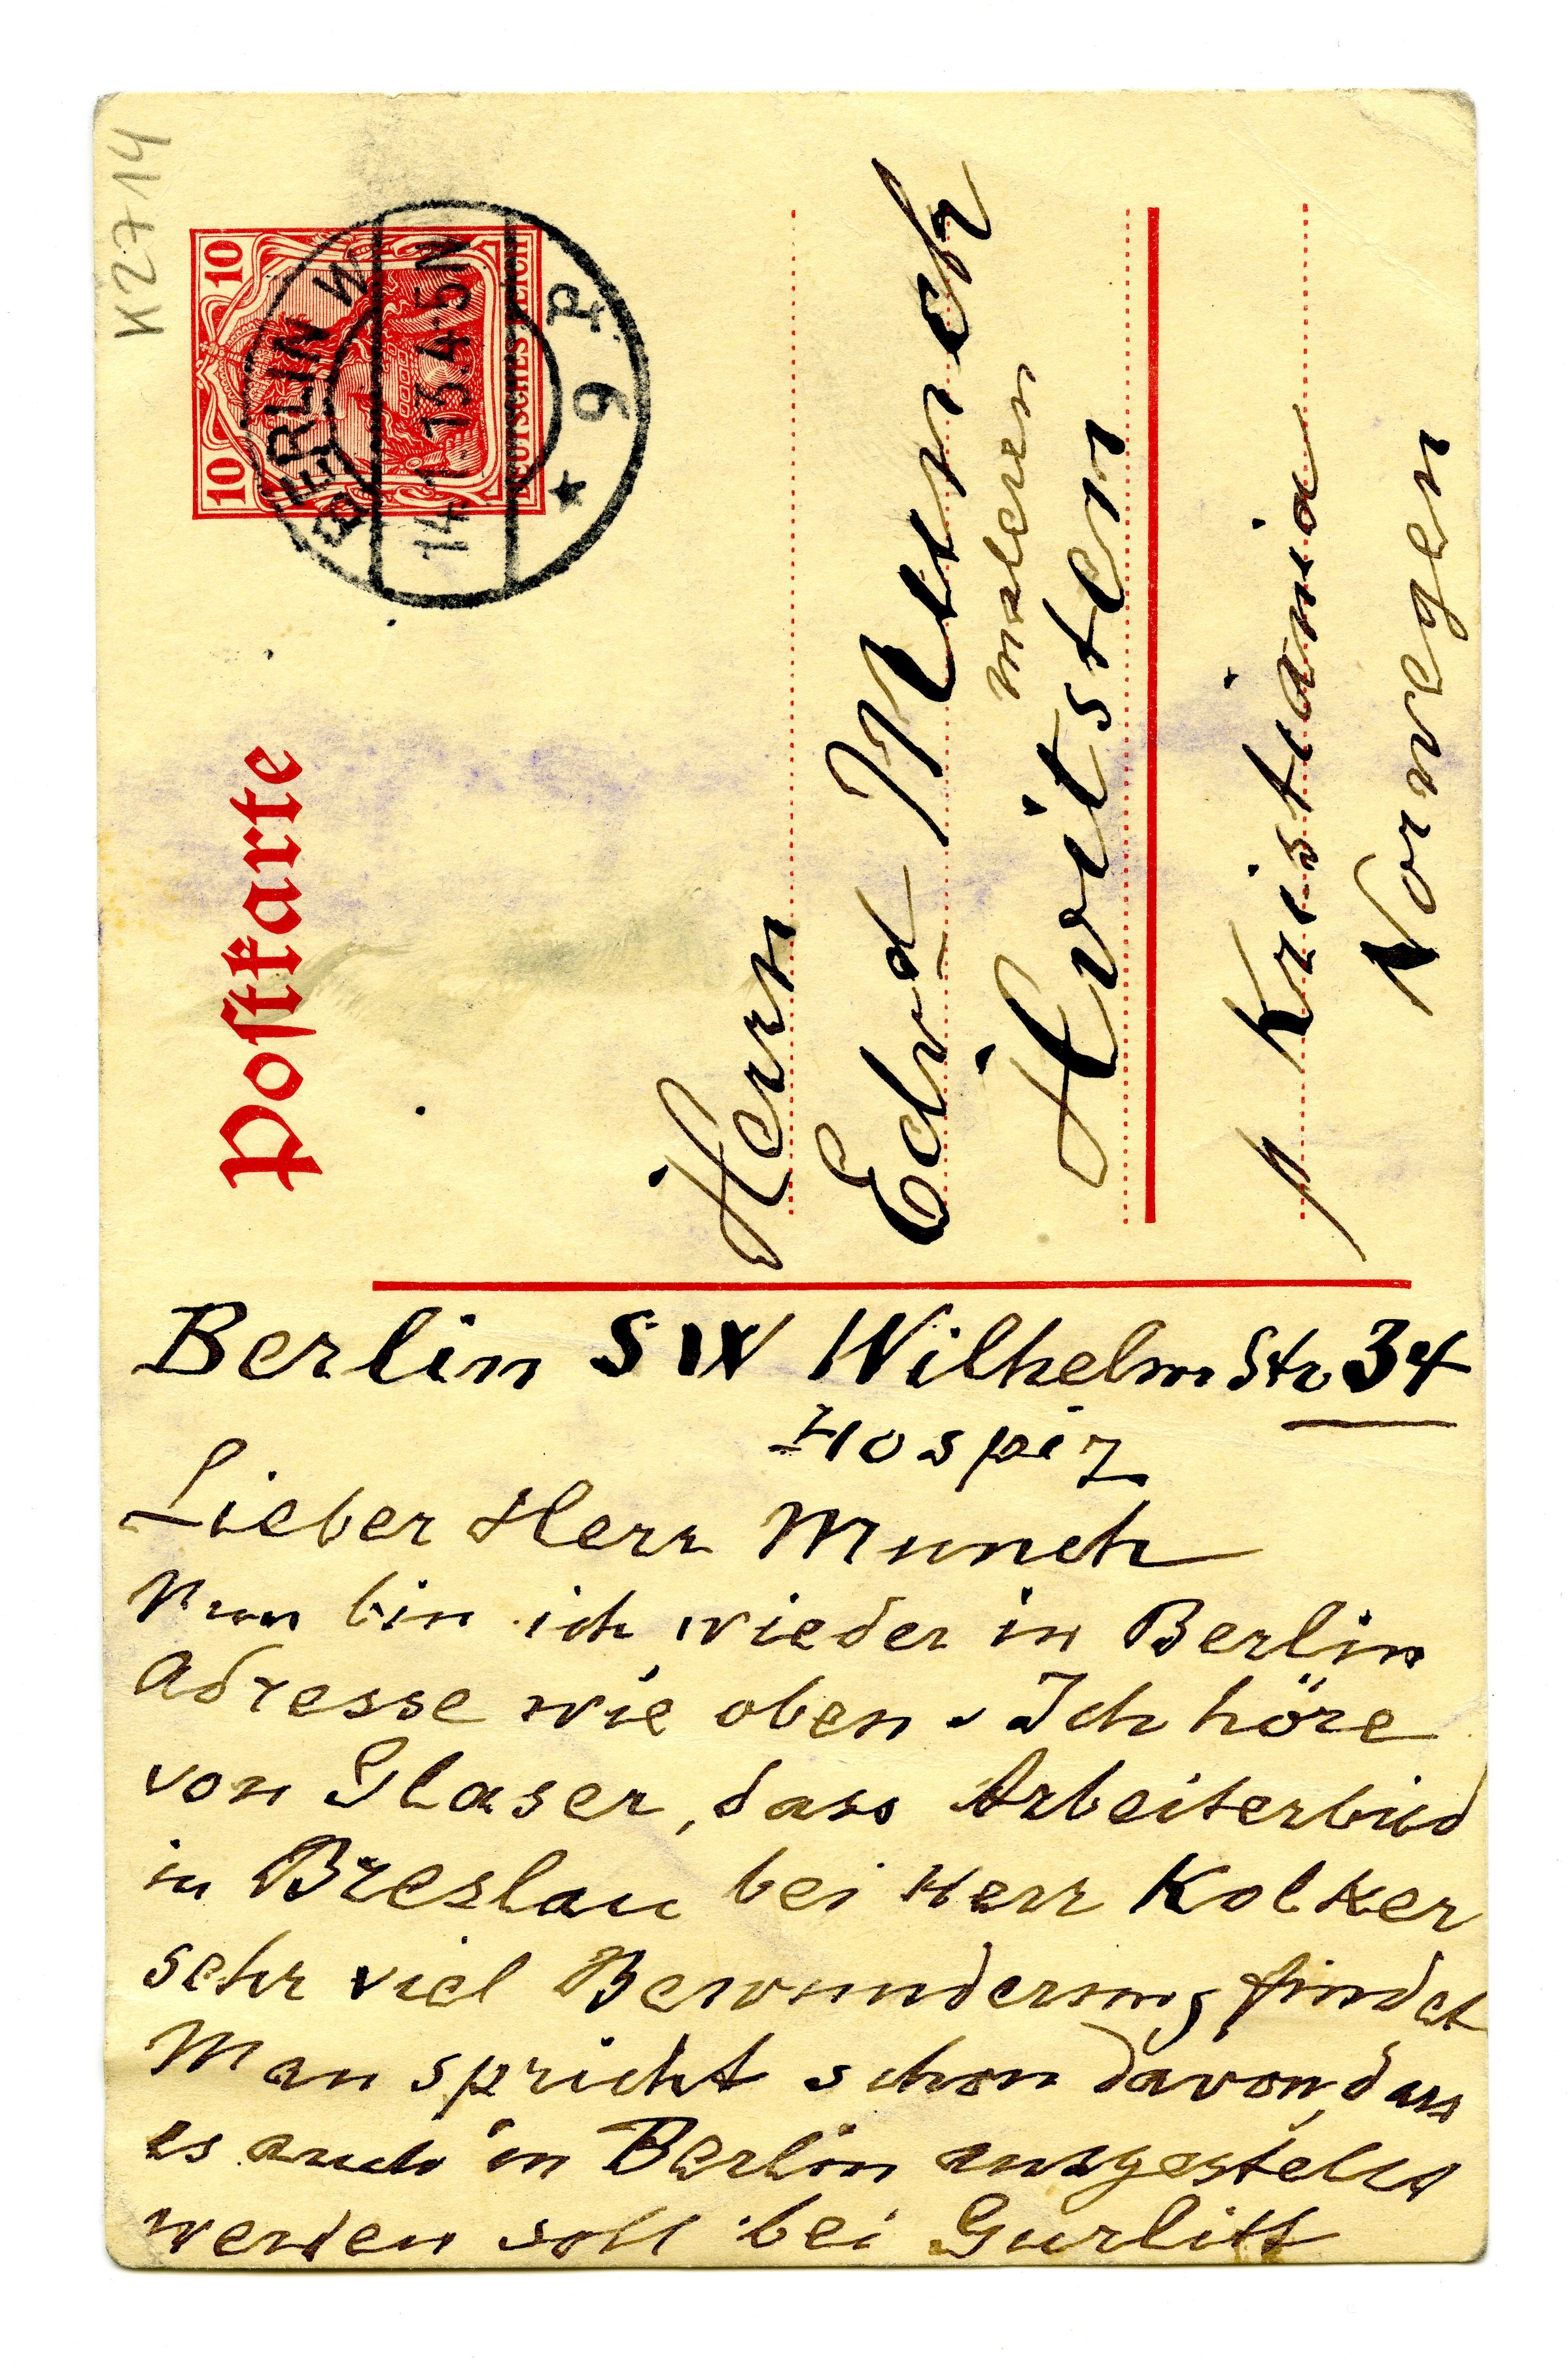 K2714
Postkarte
10 10
DEUTSCHES REICH
BERLIN W
14.1.13.4-5N
* 9
Herrn
Edvd Munch
maleren
Hvitsten
p Kristiania
Norwegen
Berlin SW WilhelmStr 34
Hospiz
Lieber Herr Munch
Nun bin ich wieder in Berlin
Adresse wie oben. Ich höre
von Glaser, dass Arbeiterbild
in Breslau bei Herr Kolker
sehr viel Bewunderung findet
Man spricht schon davon, dass
es auch in Berlin ausgestellt
werden soll bei Gurlitt